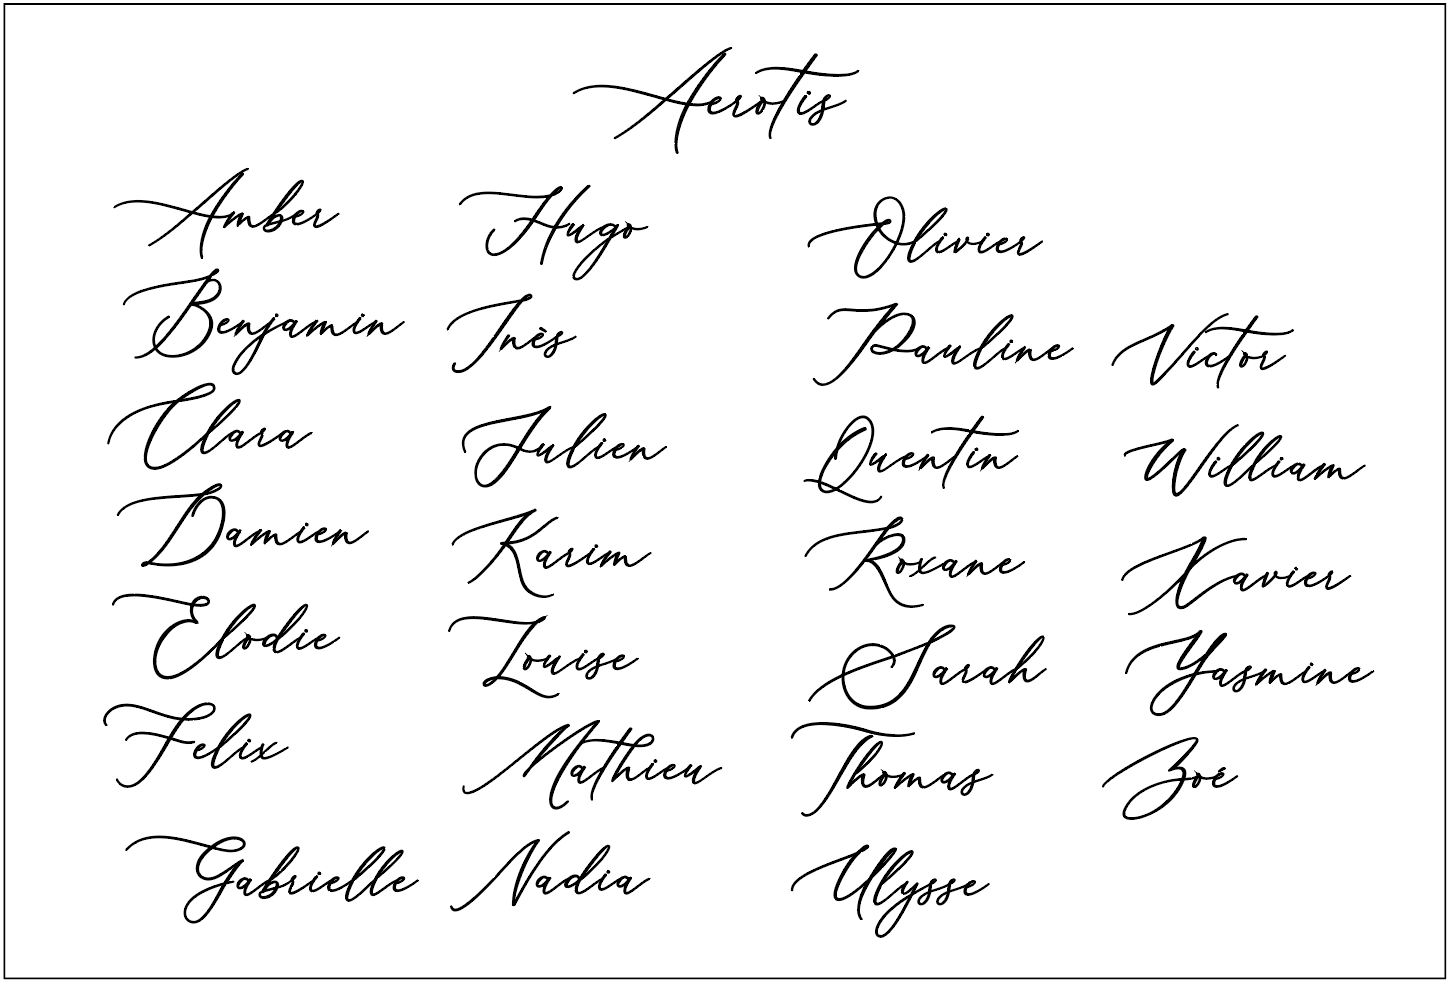 Aerotis
Amber
Benjamin
Clara
Damien
Elodie
Felix
Gabrielle
Hugo
Inès
Julien
Karim
Louise
Mathieu
Nadia
Olivier
Pauline
Quentin
Roxane
Sarah
Thomas
Ulysse
Victor
William
Xavier
Yasmine
Zoé